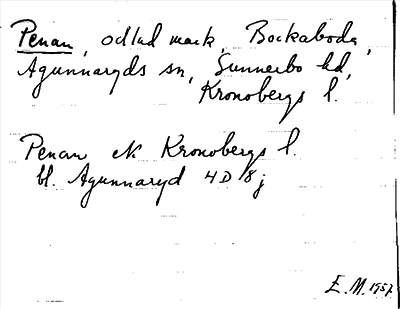 Penan, odlad mark, Bockaboda,
Agunnaryds sn, Sunnerbo hd,
Kronobergs l.
Penan ek Kronobergs l.
bl. Agunnaryd 4D 8j
E.M. 1957.